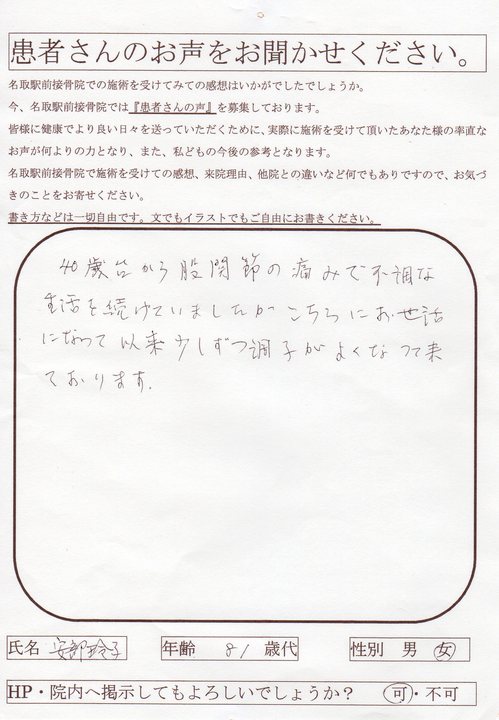 患者さんのお声をお聞かせください。
名取駅前接骨院での施術を受けてみての感想はいかがでしたでしょうか。
今、名取駅前接骨院では『患者さんの声』を募集しております。
皆様に健康でより良い日々を送っていただくために、実際に施術を受けて頂いたあなた様の率直な
お声が何よりの力となり、また、私どもの今後の参考となります。
名取駅前接骨院で施術を受けての感想、来院理由、他院との違いなど何でもありですので、お気づ
きのことをお寄せください。
書き方などは一切自由です。文でもイラストでもご自由にお書きください。
40歳台から股関節の痛みで不調な
生活を続けていましたが こちらにお世話
になって以来少しずつ調子がよくなって来
ております.
氏名 安部玲子 年齢 81 歳代 性別 男 女
HP・院内へ掲示してもよろしいでしょうか？ 可・不可